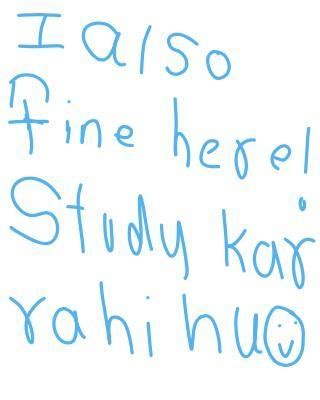 I also
fine here!
Study kar
rahi hu☺